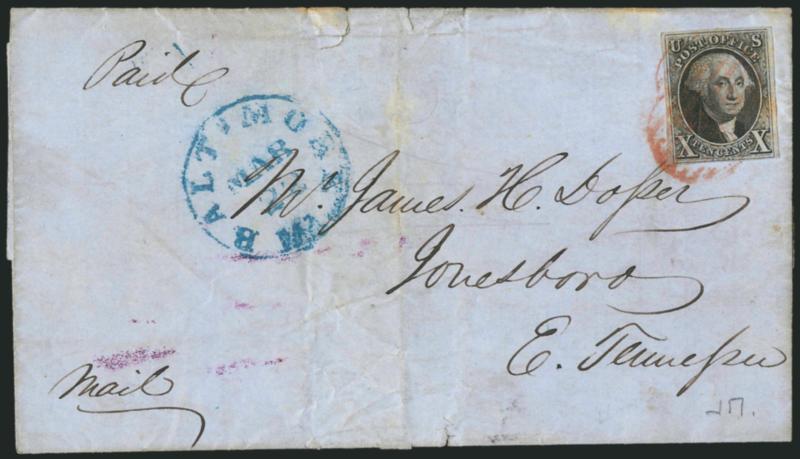 Paid
BALTIMORE Md.
MAR
U S
POST OFFICE
X TEN CENTS X
Mr. James. H. Dosser
Jonesboro
E. Tennessee
Mail